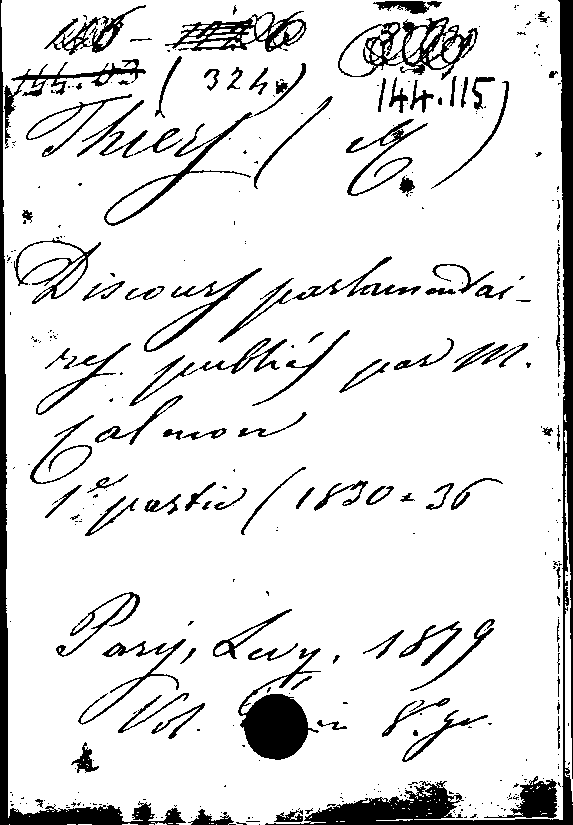 144.03 (324)
144.115
Thiers. (M.)
Discours parlamentai-
res publiés par M.
Calmon
1e partie (1830-36
Paris, Levy. 1879
Vol. in 8.º gr.